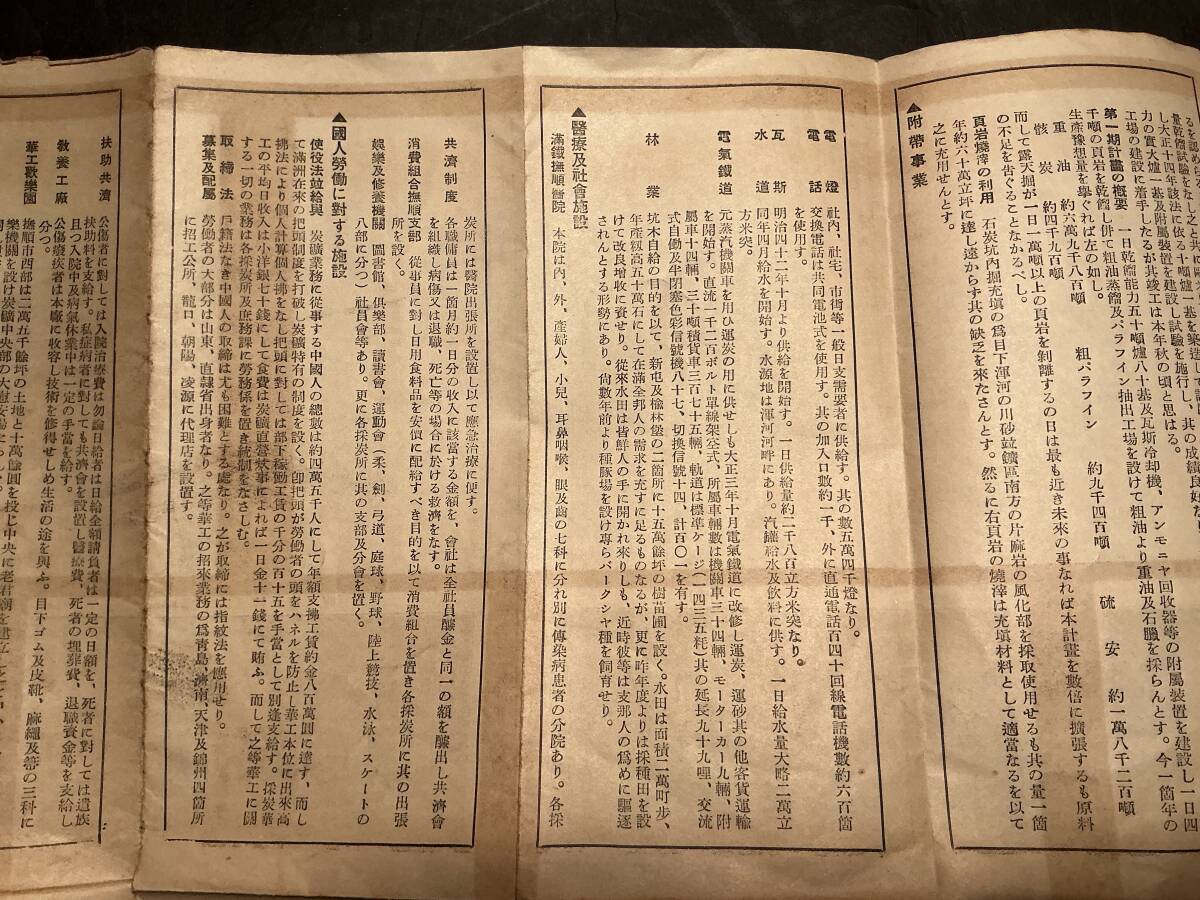 る認
量乾餾試驗をなし
し大正十四年該法に依る十噸爐一基を築造し
力の實大爐一基及附屬裝置を建設し試驗を施行し、其の成績良好な
工場の建設に着手したるが其竣工は本年秋の頃と思はる。
第一期計畫の概要 一日乾餾能力五十噸爐八十基及瓦斯冷却機、アンモニヤ回收器等の附屬裝置を建設し一日四
千噸の頁岩を乾餾し併て粗油蒸餾及パラフイン抽出工場を設けて粗油より重油及石臘を採らんとす。今一箇年の
生產豫想量を擧ぐれば左の如し。
重油 約六萬九千八百噸 粗パラフイン 約九千四百噸 硫安 約一萬八千二百噸
骸炭 約四千九百噸
而して露天掘が一日一萬噸以上の頁岩を剝離するの日は最も近き未來の事なれば本計畫を數倍に擴張するも原料
の不足を吿ぐることなかるべし。
頁岩燒滓の利用 石炭坑內掘充塡の爲目下渾河の川砂竝鑛區南方の片麻岩の風化部を採取使用せるも其の量一箇
年約六十萬立坪に達し遠からず其の缺乏を來たさんとす。然るに右頁岩の燒滓は充塡材料として適當なるを以て
之に充用せんとす。
▲附帶事業
電燈 社內、社宅、市街等一般日支需要者に供給す。其の數五萬四千燈なり。
電話 交換電話は共同電池式を使用す。其の加入口數約一千、外に直通電話百四十回線電話機數約六百箇
を使用す。
瓦斯 明治四十二年十月より供給を開始す。一日供給量約二千八百立方米突なり。
水道 同年四月給水を開始す。水源地は渾河河畔にあり。汽罐給水及飮料に供す。一日給水量大略二萬立
方米突。
電氣鐵道 元蒸汽機關車を用ひ運炭の用に供せしも大正三年十月電氣鐵道に改修し運炭、運砂其の他客貨運輸
を開始す。直流一千二百ボルト單線架空式、所屬車輛數は機關車三十四輛、モーターカー九輛、附
屬車十四輛、三十噸積貨車三百七十五輛、軌道は標準ゲージ(一四三五粍)其の延長九十九哩、交流
式自働及半閉塞色彩信號機八十七、切換信號十四、計百〇一を有す。
林業 坑木自給の目的を以て、新屯及楡林堡の二箇所に十五萬餘坪の樹苗圃を設く。水田は面積二萬町步、
年產籾高五十萬石にして在滿全邦人の需求を充すに足るものなるが、更に昨年度よりは採種田を設
けて改良增收に資せり。從來水田は皆鮮人の手に開かれ來りしも、近時彼等は支那人の爲めに驅逐
されんとする形勢にあり。尙數年前より種豚場を設け專らバークシヤ種を飼育せり。
▲醫療及社會施設
滿鐵撫順醫院 本院は內、外、產婦人、小兒、耳鼻咽喉、眼及齒の七科に分れ別に傳染病患者の分院あり。各採
炭所には醫院出張所を設置し以て應急治療に便す。
共濟制度 各職傭員は一箇月約一日分の收入に該當する金額を、會社は全社員醵金と同一の額を醵出し共濟會
を組織し病傷又は退職、死亡等の場合に於ける救濟をなす。
消費組合撫順支部 從事員に對し日用食料品を安價に配給すべき目的を以て消費組合を置き各採炭所に其の出張
所を設く。
娛樂及修養機關 圖書館、俱樂部、讀書會、運動會(柔、劍、弓道、庭球、野球、陸上競技、水泳、スケートの
八部に分つ)社員會等あり。更に各採炭所に其の支部及分會を置く。
▲國人勞働に對する施設
使役法竝給與 炭礦業務に從事する中國人の總數は約四萬五千人にして年額支拂工賃約金八百萬圓に達す、而し
て滿洲在來の把頭制度を打破し炭礦特有の制度を設く。卽把頭が勞働者の頭をハネルを防止し華工本位に出來高
拂法により個人計算個人拂をなし把頭に對しては部下稼働工賃の千分の百十五を手當として別途支給す。採炭華
工の平均日收入は小洋銀七十錢にして食費は炭礦直營炊事によれば一日金十一錢にて賄ふ。而して之等華工に關
する一切の業務は各採炭所及庶務課に勞務係を置き統制をなさしむ。
取締法 戶籍法なき中國人の取締は尤も困難とする處なり。之が取締には指紋法を應用せり。
募集及配屬 勞働者の大部分は山東、直隷省出身者なり。之等華工の招來業務の爲靑島、濟南、天津及錦州四箇所
に招工公所、龍口、朝陽、凌源に代理店を設置す。
扶助共濟 公傷者に對しては入院治療費は勿論日給者は日給全額請負者は一定の日額を、死者に對しては遺族
扶助料を支給す。私症病者に對しても共濟會を設置し醫療費、死者の埋葬費、退職資金等を支給し
且つ入院中及病氣休業中は一定の手當を給す。
敎養工廠 公傷癈疾者は本廠に收容し技術を修得せしめ生活の途を與ふ。目下ゴム及皮靴、麻繩及等の三科に
分つ。
華工歡樂園 撫順市西部は二萬五千餘坪の土地と十萬餘圓を投じ中央に老君廟を建立し
樂機關を設け炭礦中央部の大慰安場